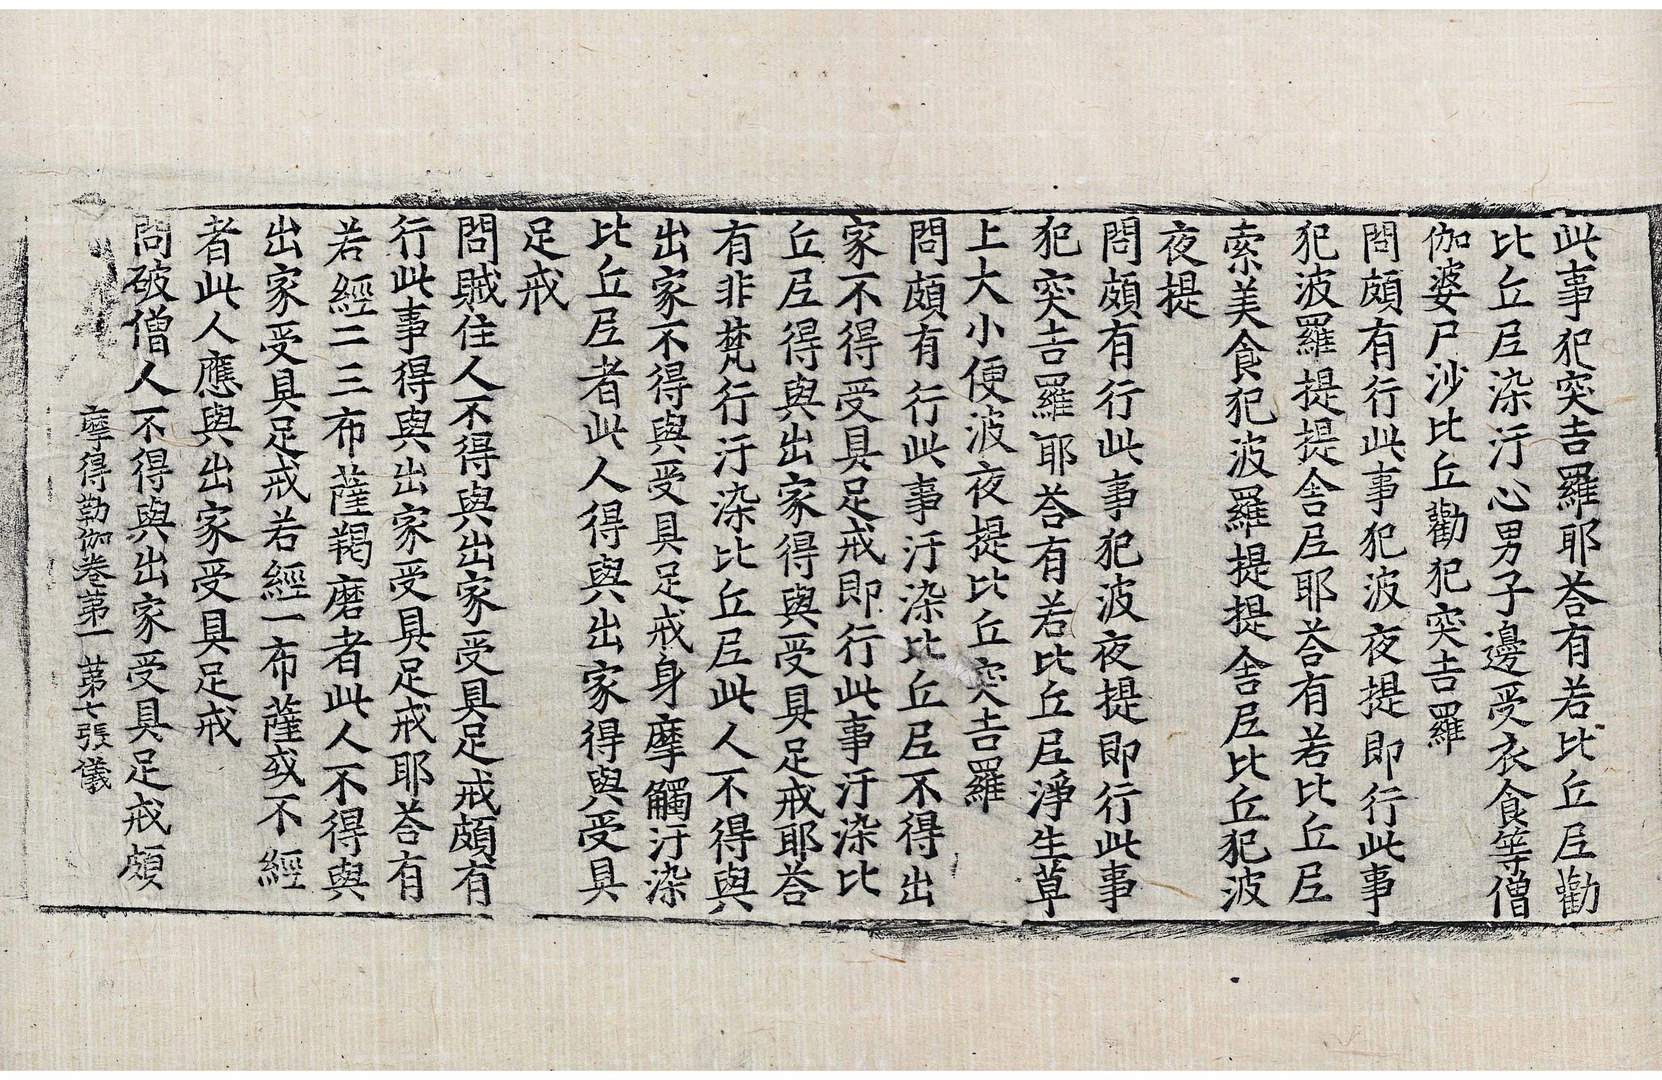 此事犯突吉羅耶荅有若比丘𡰱勸
比丘𡰱染汙心男子邊受衣食等僧
伽婆尸沙比丘勸犯突吉羅
問頗有行此事犯波夜提即行此事
犯波羅提提舍𡰱耶荅有若比丘𡰱
索美食犯波羅提提舍𡰱比丘犯波
夜提
問頗有行此事犯波夜提即行此事
犯突吉羅耶荅有若比丘𡰱淨生草
上大小便波夜提比丘突吉羅
問頗有行此事汙染比丘𡰱不得出
家不得受具足戒即行此事汙染比
丘𡰱得與出家得與受具足戒耶荅
有非梵行汙染比丘𡰱此人不得與
出家不得與受具足戒身摩觸汙染
比丘𡰱者此人得與出家得與受具
足戒
問賊住人不得與出家受具足戒頗有
行此事得與出家受具足戒耶荅有
若經二三布薩羯磨者此人不得與
出家受具足戒若經一布薩或不經
者此人應與出家受具足戒
問破僧人不得與出家受具足戒頗
摩得勒伽卷第一 第七張 儀